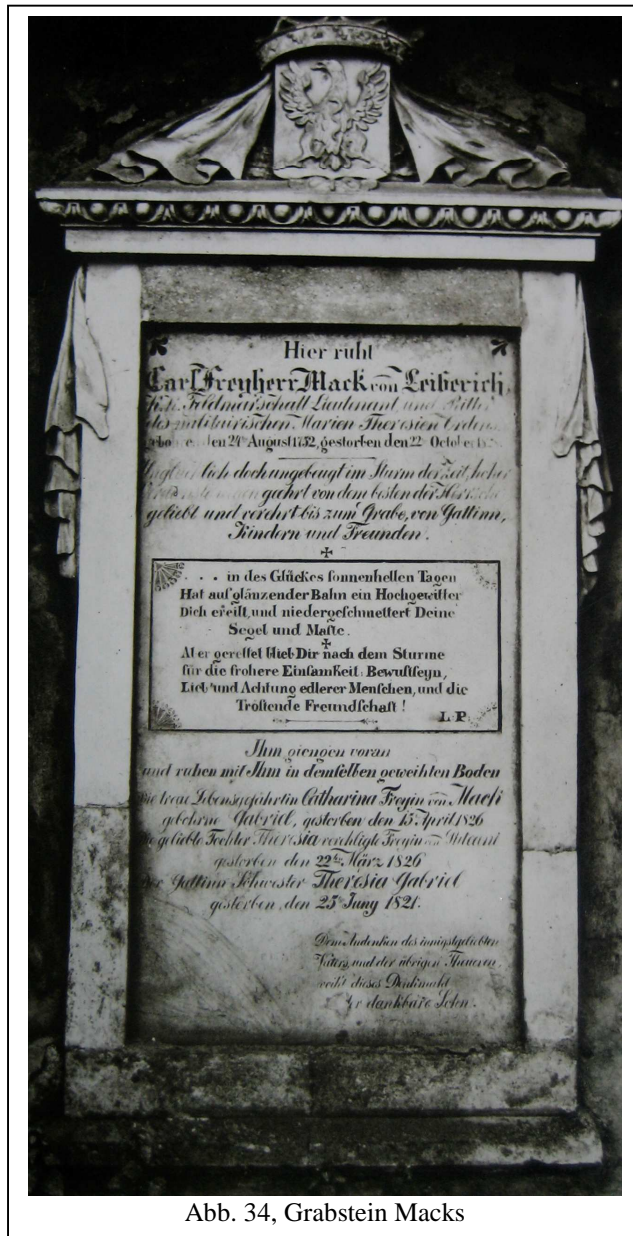 Hier ruht
Carl Freyherr Mack von Leiberich,
K. k. Feldmarschall Lieutenant und Ritter
des militairischen Marien Theresien Ordens
gebohren den 24ten August 1752, gestorben den 22ten October
doch ungebeugt im Sturm der Zeit, hoher
geehrt von dem besten der
geliebt und verehrt bis zum Grabe, von Gattinn,
Kindern und Freunden.
. . . in des Glückes sonnenhellen Tagen
Hat auf glänzender Bahn ein Hochgewitter
Dich ereilt, und niedergeschmettert Deine
Segel und Maste.
Aber gerettet blieb Dir nach dem Sturme
für die frohere Einsamkeit: Bewustseyn,
Lieb' und Achtung edlerer Menschen, und die
Tröstende Freundschaft!
L. P.
Ihm giengen voran
und ruhen mit Ihm in demselben geweihten Boden
Die treue Lebensgefährtin Catharina Freyin von Mack
gebohrne Gabriel, gestorben den 15. April 1826
geliebte Tochter Theresia verehligte Freyin von
gestorben den 22ten März 1826
Der Gattinn Schwester Theresia Gabriel
gestorben, den 25ten Juny 1821.
Dem Andenken des innigstgeliebten
Vaters, und der übrigen Theueren,
weiht dieses Denkmahl
der dankbare Sohn.
Abb. 34, Grabstein Macks